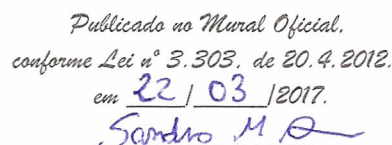 Publicado no Mural Oficial,
conforme Lei nº 3.303, de 20.4.2012.
em 22 / 03 /2017.
Sandro M